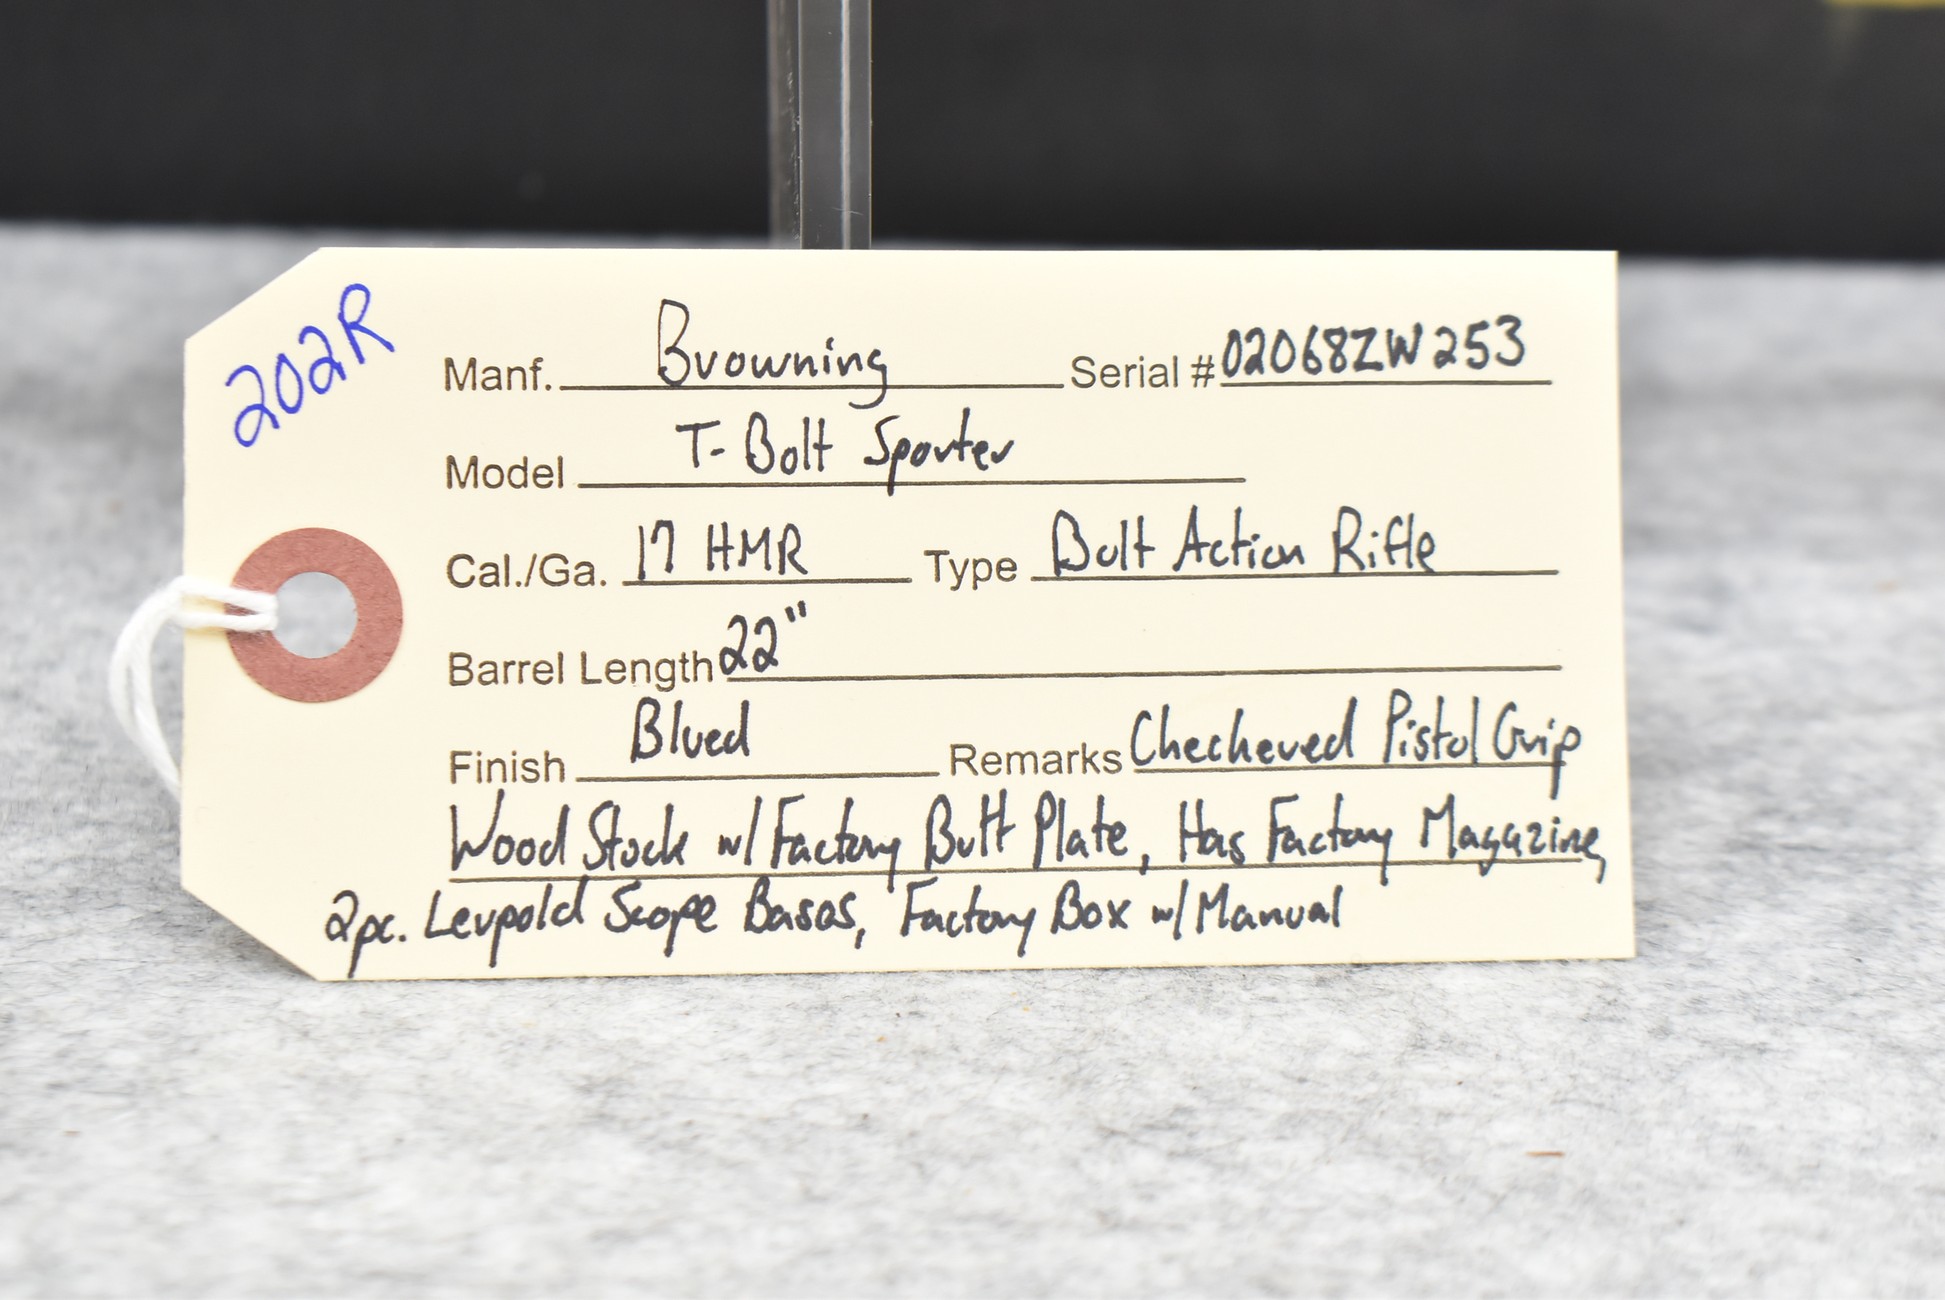 202R
Manf. Browning Serial # 02068ZW253
Model T-Bolt Sporter
Cal./Ga. 17 HMR Type Bolt Action Rifle
Barrel Length 22"
Finish Blued Remarks Checkered Pistol Grip
Wood Stock w/ Factory Butt Plate, Has Factory Magazine,
2pc. Leupold Scope Bases, Factory Box w/ Manual